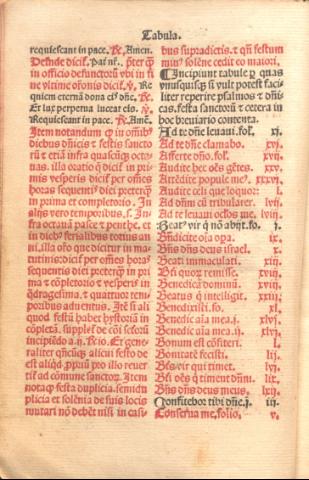 Tabula.
requiescant in pace. ℟. Amen.
Deinde dicit̃. Pr̃ nr̃. pret̃ qȝ
in officio defunctorũ vbi in fi
ne vltime orõnis dicit̃. ℣. Re
quiem eternã dona eis dñe. ℟.
Et lux perpetua luceat eis. ℣.
Requiescant in pace. ℟. Amẽ.
Item notandum ꝙ in om̃ibꝰ
diebus dñicis ⁊ festis sancto
rũ ⁊ etiã infra quascũqȝ octa
uas. illa oratio q̃ dicit̃ in pri
mis vesperis dicit̃ per om̃es
horas sequentis diei preterqȝ
in prima et completorio. In
alijs vero temporibus. s. In
fra octauã pasce ⁊ penthe. et
in diebꝰ ferialibus totius an
ni. illa orõ que dicitur in ma
tutinis: dicit̃ per om̃es horas
sequentis diei preterqȝ in pri
ma ⁊ cõpletorio ⁊ vesperis in
q̃dragesima. ⁊ quattuor tem
poribus aduentus. Itẽ si ali
quod festũ habet hystoriã in
cõpletã. supplet̃ de cõi
incipiẽdo a .ij. ℟io. Et gene
raliter q̃ncũqȝ alicui festo de
est aliqd̾ ꝓpriũ pro illo reuer
tit̃ ad cõmune sanctorꝝ. Item
nota ꝙ festa duplicia. semidu
plicia et solẽnia de suis locis
mutari nõ debẽt nisi in casi-
bus supradictis. ⁊ q̃n festum
minꝰ solẽne cedit eo maiori.
¶Incipiunt tabule ꝑ quas
vnusquisqȝ si vult potest faci
liter reperire psalmos ⁊ dñi-
cas. festa sanctorũ ⁊ cetera in
hoc breuiario contenta.
Ad te dñe leuaui. fol. xj.
Ad te dñe clamabo. xvj.
Afferte dño. fol. xvj.
Audite hec oẽs gẽtes. xxv.
Attẽdite popule meꝰ. xxxvj.
Audite celi que loquor: l.
Ad dñm cũ tribularer. lvij.
Ad te leuaui oclos me. lviij.
Beatꝰ vir q̃ nõ abijt. fo. j.
Bñdicite oĩa opa. ix.
Bñs dñs deus israel. x.
Beati immaculati. xij.
Bñ quorꝝ remisse. xviij.
Benedicã dominũ. xviij.
Beatus q̃ intelligit. xxiij.
Benedixisti. fo. xl.
Benedic aĩa mea .j. xlvj.
Benedic aĩa mea .ij. xlvj.
Bonum est cõfiteri. l.
Bonitatẽ fecisti. lij.
Btũs vir qui timet. lvj.
Bti oẽs q̃ timent dñm. lix.
Bñs dñs deus meus. lxij.
Confitebor tibi dñe .j. iij.
Conserua me. folio. v.